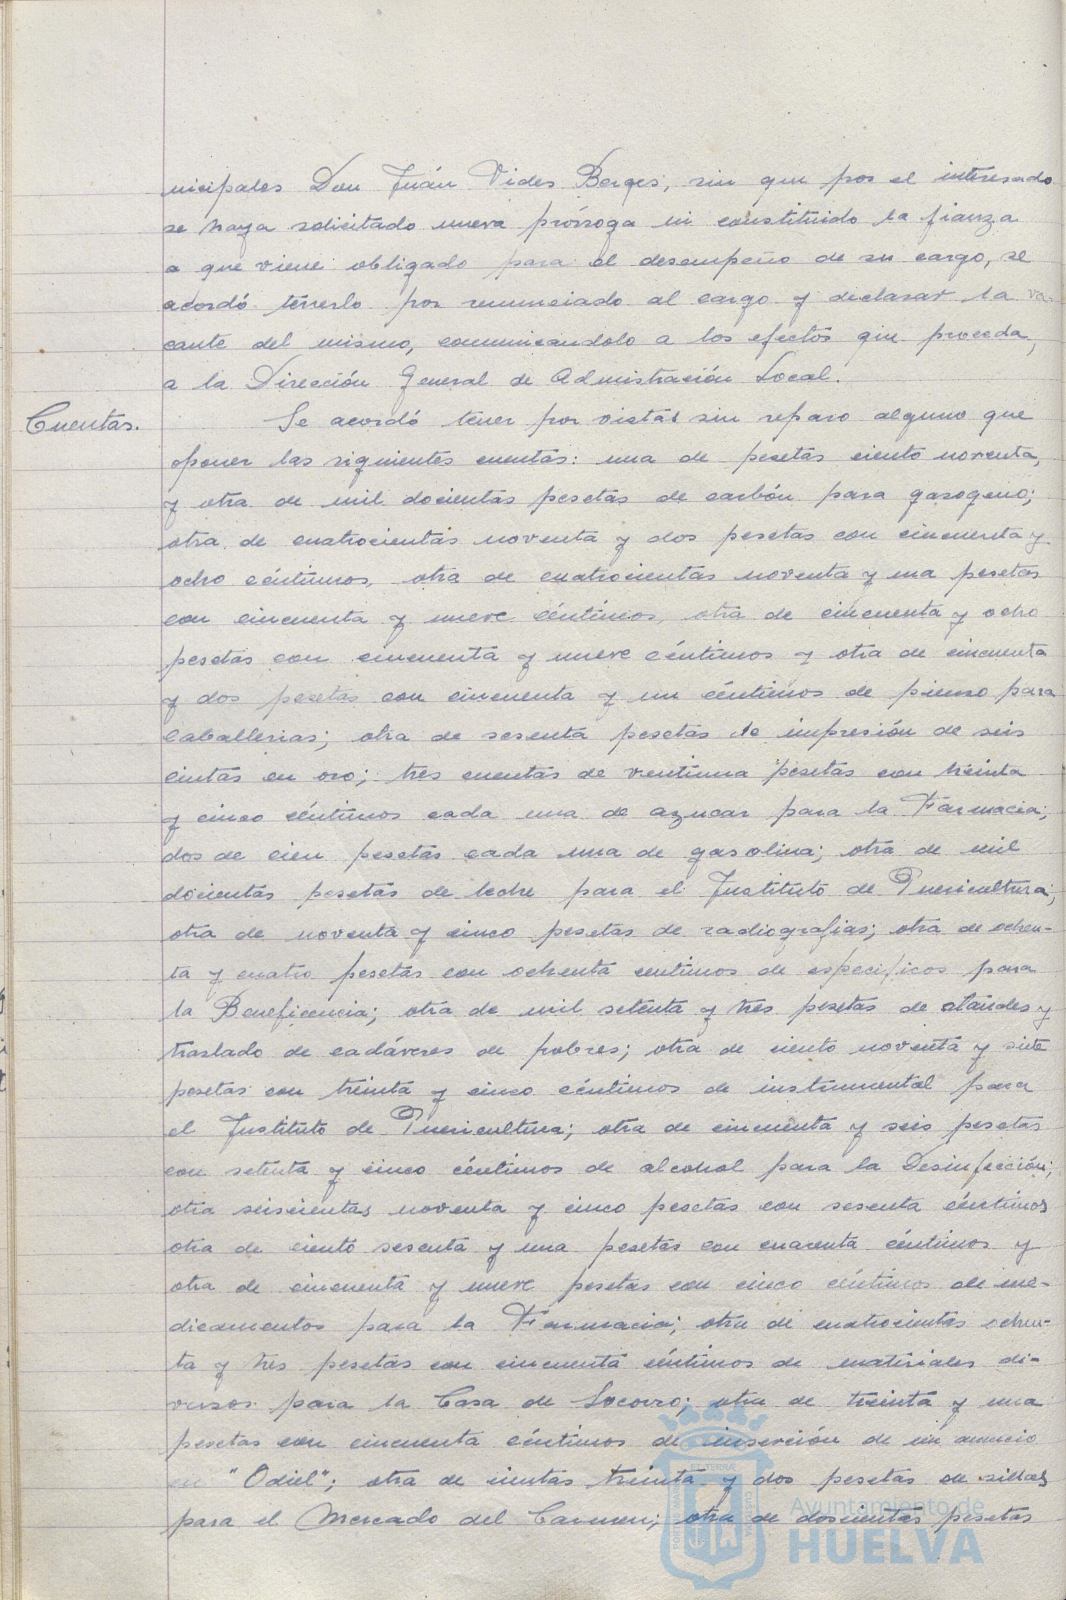 nicipales Don Juán Vides Borges, sin que por el interesado
se haya solicitado nueva prórroga ni constituido la fianza
a que viene obligado para el desempeño de su cargo, se
acordó tenerlo por renunciado al cargo y declarar la va-
cante del mismo, comunicandolo a los efectos que proceda,
a la Dirección General de Admistración Local.
Cuentas.
Se acordó tener por vistas sin reparo alguno que
oponer las siguientes cuentas: una de pesetas ciento noventa,
y otra de mil docientas pesetas de carbón para gasogeno;
otra de cuatrocientas noventa y dos pesetas con cincuenta y
ocho céntimos, otra de cuatrocientas noventa y una pesetas
con cincuenta y nueve céntimos, otra de cincuenta y ocho
pesetas con cincuenta y nueve céntimos y otra de cincuenta
y dos pesetas con cincuenta y un céntimos de pienso para
caballerias; otra de sesenta pesetas de impresión de seis
cintas en oro; tres cuentas de ventiuna pesetas con treinta
y cinco céntimos cada una de azucar para la Farmacia;
dos de cien pesetas cada una de gasolina; otra de mil
docientas pesetas de leche para el Instituto de Puericultura;
otra de noventa y cinco pesetas de radiografias; otra de ochen-
ta y cuatro pesetas con ochenta centimos de especificos para
la Beneficencia; otra de mil setenta y tres pesetas de ataúdes y
traslado de cadáveres de pobres; otra de ciento noventa y siete
pesetas con treinta y cinco céntimos de instrumental para
el Instituto de Puericultura; otra de cincuenta y seis pesetas
con setenta y cinco céntimos de alcohol para la Desinfección;
otra seiscientas noventa y cinco pesetas con sesenta céntimos
otra de ciento sesenta y una pesetas con cuarenta céntimos y
otra de cincuenta y nueve pesetas con cinco céntimos de me-
dicamentos para la Farmacia; otra de cuatrocientas ochen-
ta y tres pesetas con cincuenta céntimos de materiales di-
versos para la Casa de Socorro; otra de treinta y una
pesetas con cincuenta céntimos de inserción de un anuncio
en "Odiel"; otra de cientas treinta y dos pesetas de sillas
para el Mercado del Carmen; otra de doscientas pesetas
Ayuntamiento de
HUELVA